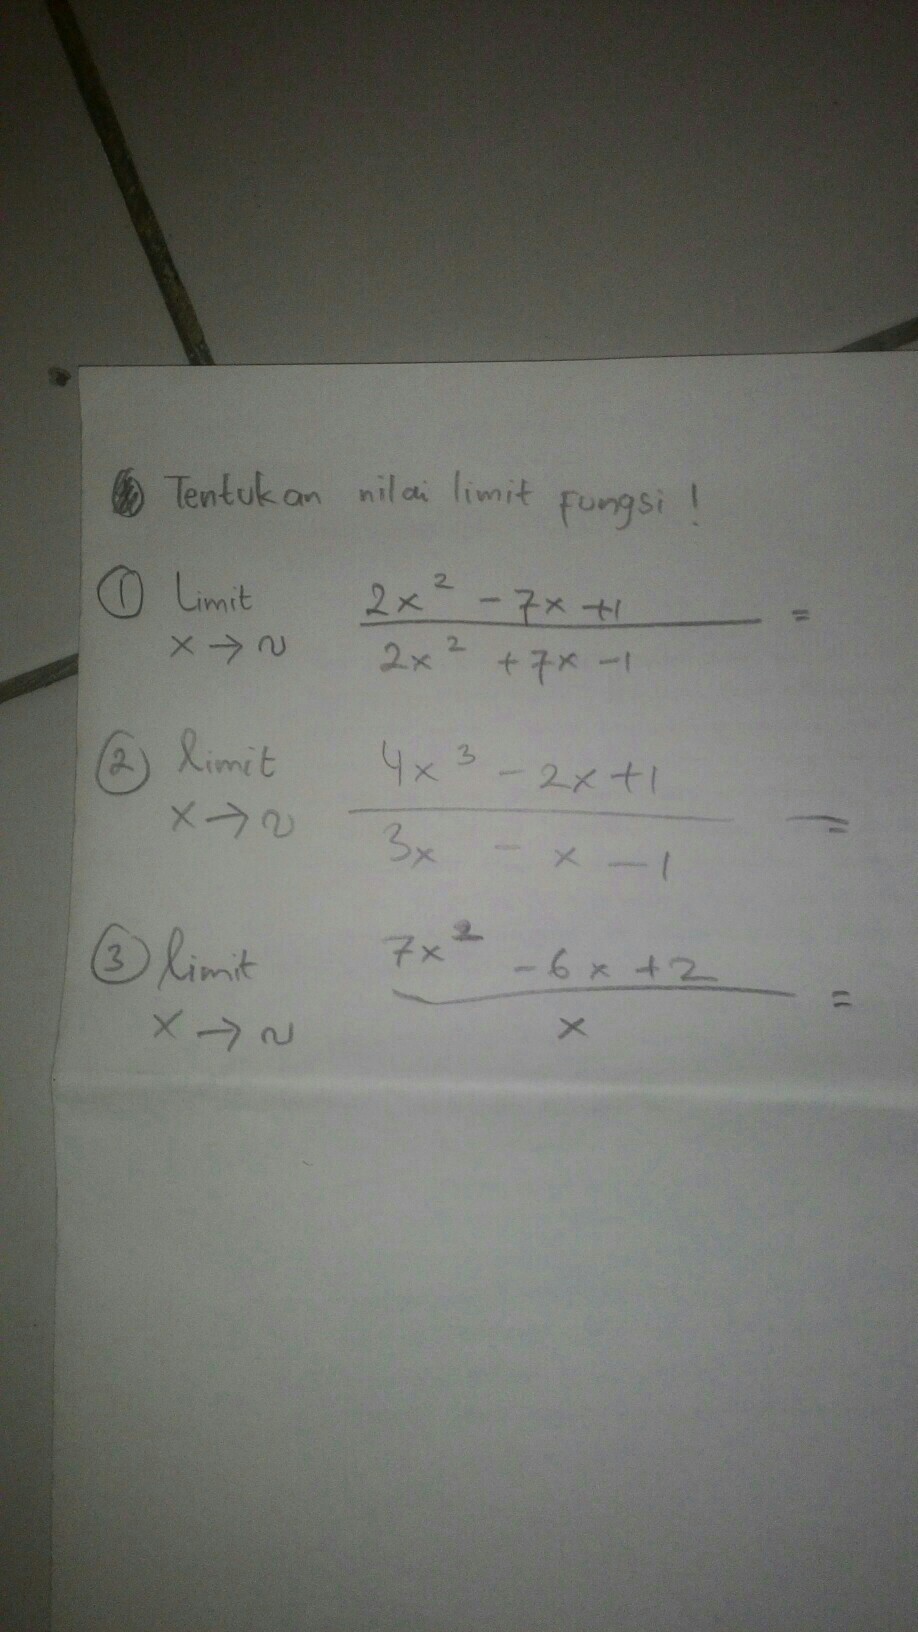 Tentukan nilai limit fungsi !
① Limit 2x² - 7x + 1 =
x → ~ 2x² + 7x - 1
② limit 4x³ - 2x + 1 =
x → ~ 3x - x - 1
③ limit 7x² - 6x + 2 =
x → ~ x